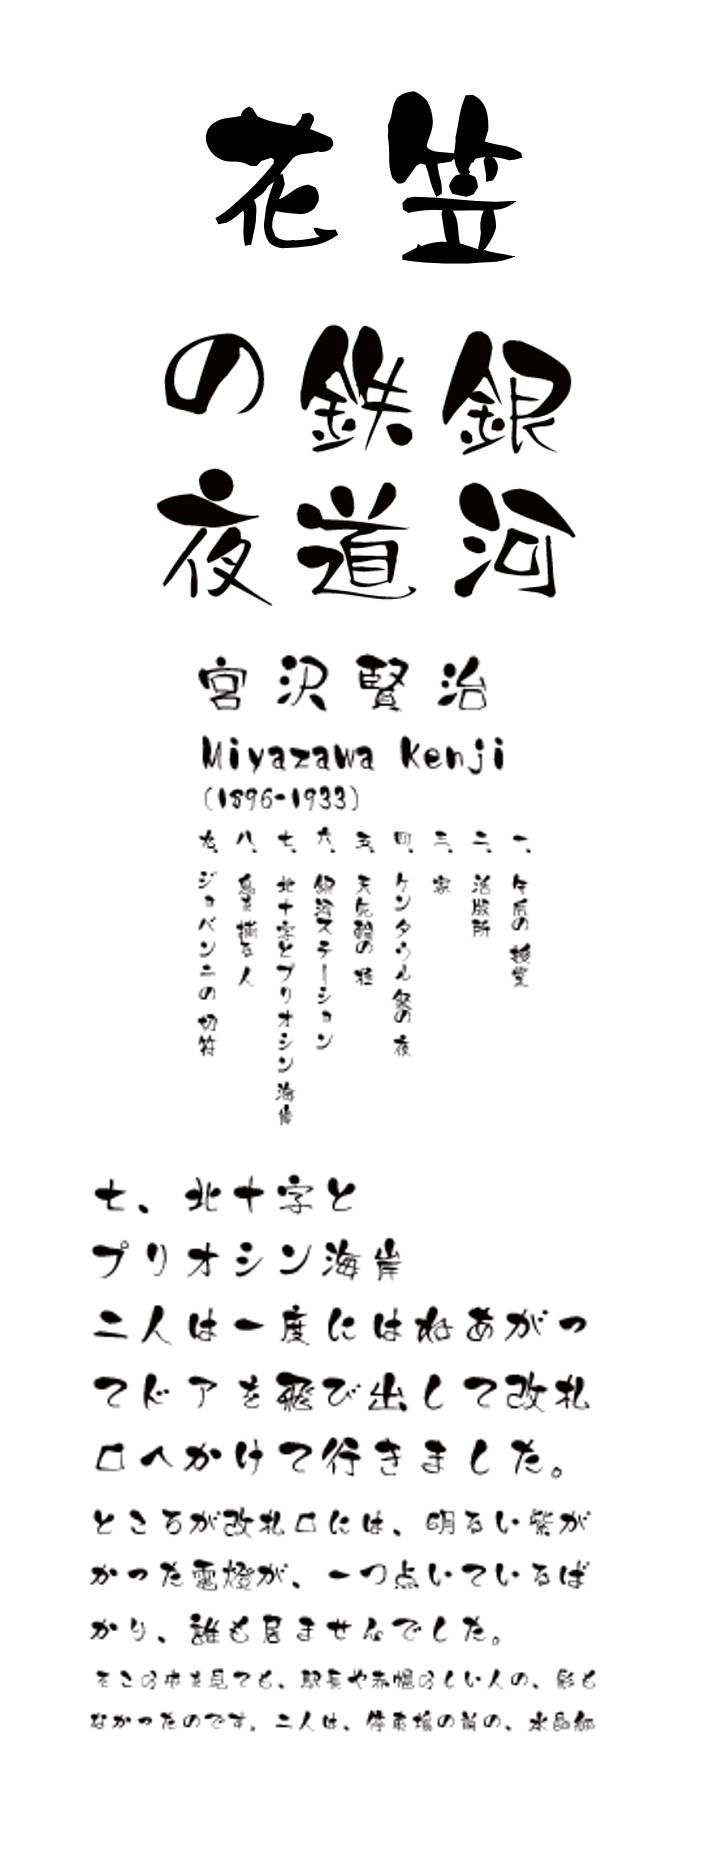 花笠
銀河
鉄道
の夜
宮沢賢治
Miyazawa Kenji
(1896-1933)
一、午后の授業
二、活版所
三、家
四、ケンタウル祭の夜
五、天気輪の柱
六、銀河ステーション
七、北十字とプリオシン海岸
八、鳥を捕る人
九、ジョバンニの切符
七、北十字と
プリオシン海岸
二人は一度にはねあがっ
てドアを飛び出して改札
口へかけて行きました。
ところが改札口には、明るい紫が
かった電燈が、一つ点いているば
かり、誰も居ませんでした。
そこら中を見ても、駅長や赤帽らしい人の、影も
なかったのです。二人は、停車場の前の、水晶細